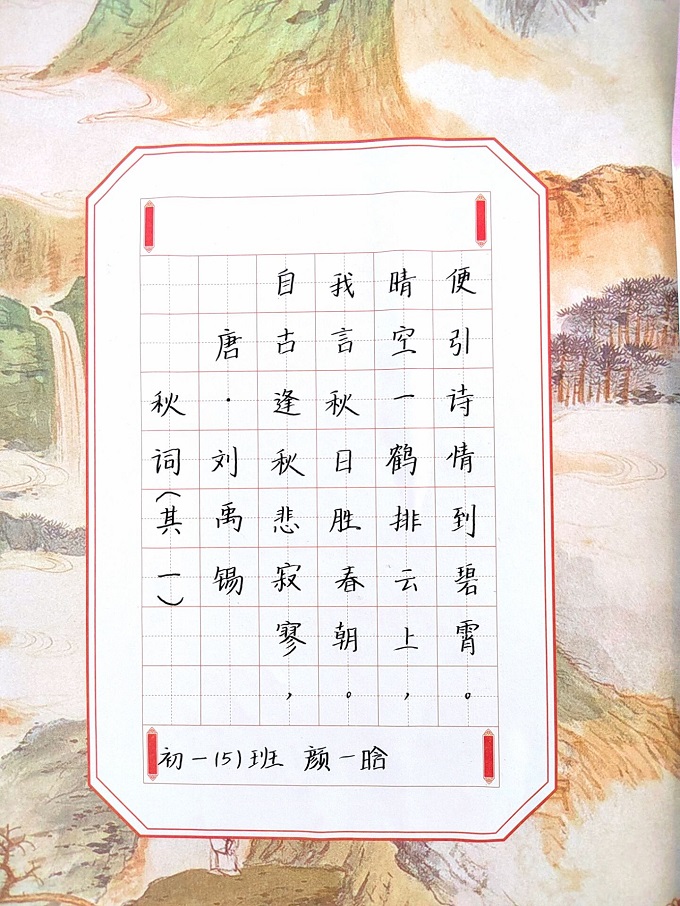 秋词(其一)
唐·刘禹锡
自古逢秋悲寂寥，
我言秋日胜春朝。
晴空一鹤排云上，
便引诗情到碧霄。
初一(5)班 颜一晗